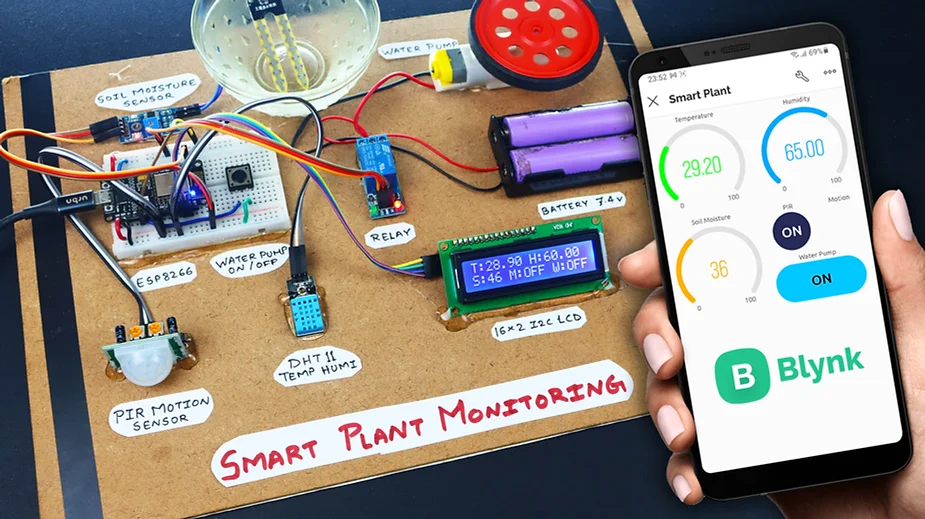 SOIL MOISTURE
SENSOR
WATER PUMP
ESP8266
WATER PUMP
ON / OFF
RELAY
BATTERY 7.4v
T:28.90 H:60.00
S:46 M:OFF W:OFF
16×2 I2C LCD
DHT 11
TEMP HUMI
PIR MOTION
SENSOR
SMART PLANT MONITORING
23:52
69%
Smart Plant
Temperature
29.20
0
100
Humidity
65.00
0
100
Soil Moisture
36
0
100
PIR
Motion
ON
Water Pump
ON
B Blynk